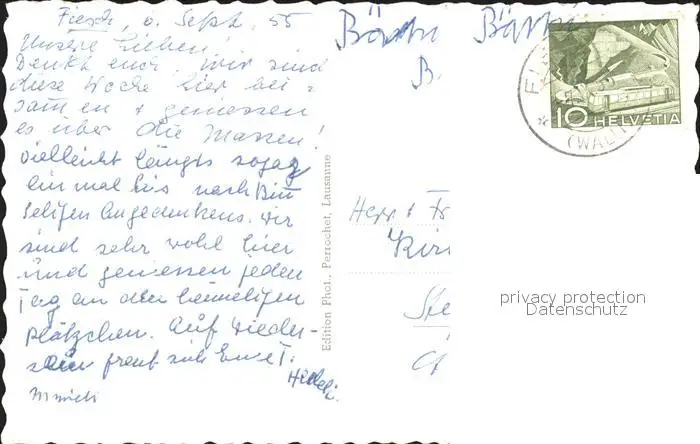 Fiesch, 6. Sept. 55
Unsere Lieben!
Denkt euch, wir sind
diese Woche hier bei-
sammen + geniessen
es über die Massen!
Vielleicht längts sogar
ein mal bis nach Binn
seligen Angedenkens. Wir
sind sehr wohl hier
und geniessen jeden
Tag an den heimeligen
Plätzchen. Auf Wieder-
sehn freut sich Eure T.
Hedi
Bärti Bärti
B.
10 HELVETIA
(WALLIS)
Herr + Fr
Edition Phot. Perrochet, Lausanne
privacy protection
Datenschutz